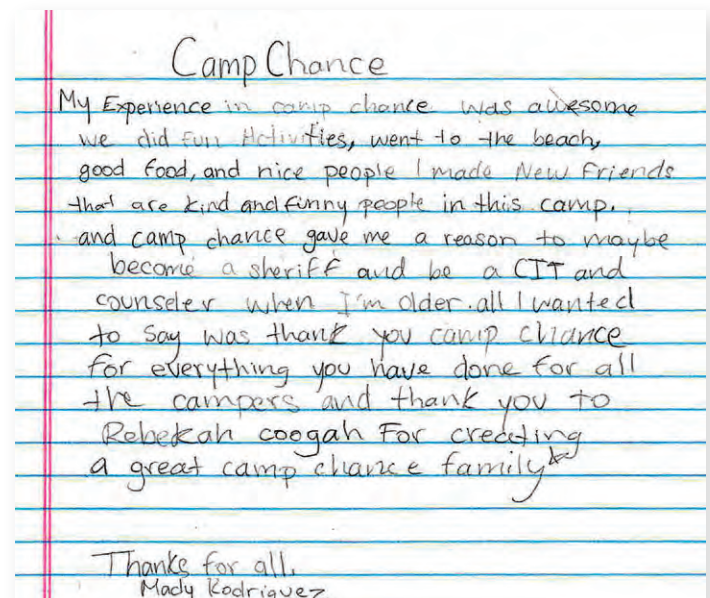 Camp Chance
My Experience in camp chance was awesome
we did fun Activities, went to the beach,
good food, and nice people I made New Friends
that are kind and funny people in this camp.
and camp chance gave me a reason to maybe
become a sheriff and be a CIT and
counseler when I'm older. all I wanted
to say was thank you camp chance
for everything you have done for all
the campers and thank you to
Rebekah coogah For creating
a great camp chance family
Thanks for all.
Mady Rodriguez